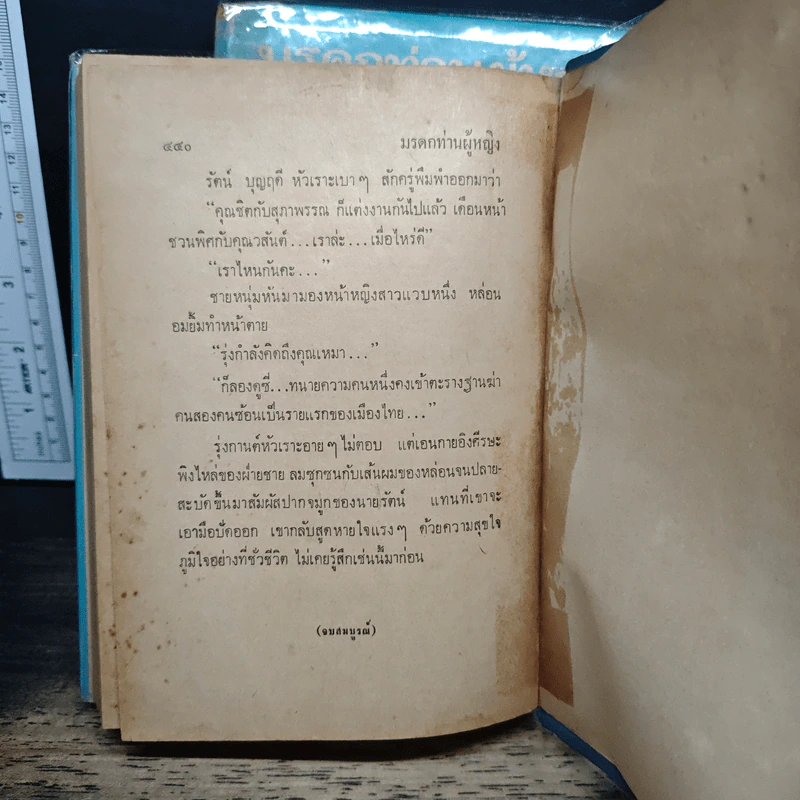 มรดกท่านผู้ห
๔๔๐ มรดกท่านผู้หญิง
รัตน์ บุญฤดี หัวเราะเบาๆ สักครู่พึมพำออกมาว่า
“คุณชิตกับสุภาพรรณ ก็แต่งงานกันไปแล้ว เดือนหน้า
ชวนพิศกับคุณวสันต์...เราล่ะ...เมื่อไหร่ดี”
“เราไหนกันคะ...”
ชายหนุ่มหันมามองหน้าหญิงสาวแวบหนึ่ง หล่อน
อมยิ้มทำหน้าตาย
“รุ่งกำลังคิดถึงคุณเหมา...”
“ก็ลองดูซี่...ทนายความคนหนึ่งคงเข้าตะรางฐานฆ่า
คนสองคนซ้อนเป็นรายแรกของเมืองไทย...”
รุ่งกานต์หัวเราะอายๆ ไม่ตอบ แต่เอนกายอิงศีรษะ
พิงไหล่ของฝ่ายชาย ลมซุกซนกับเส้นผมของหล่อนจนปลาย-
สะบัดขึ้นมาสัมผัสปากจมูกของนายรัตน์ แทนที่เขาจะ
เอามือปัดออก เขากลับสูดหายใจแรงๆ ด้วยความสุขใจ
ภูมิใจอย่างที่ชั่วชีวิต ไม่เคยรู้สึกเช่นนี้มาก่อน
(จบสมบูรณ์)